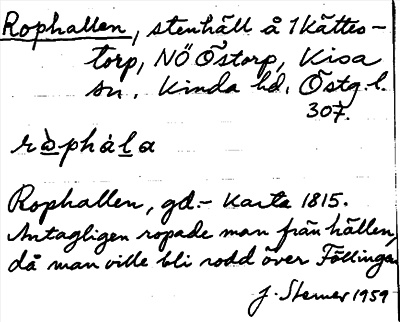 Rophallen, stenhäll å 1 Kättes-
torp, NÖ Östorp, Kisa
sn. Kinda hd. Östg. l.
307.
ròphála
Rophallen, gd. - Karta 1815.
Antagligen ropade man från hällen,
då man ville bli rodd över Föllingen
J. Sterner 1959